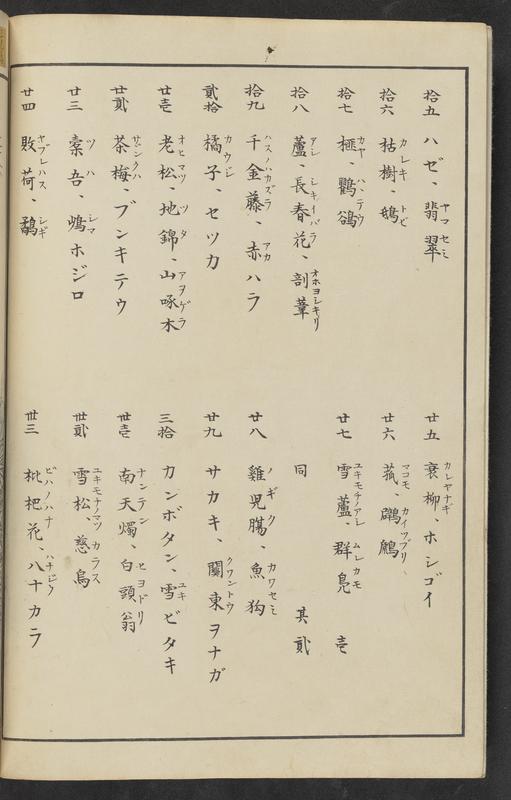 拾五 ハゼ、翡翠ヤマセミ
拾六 枯樹カレキ、鴟トビ
拾七 榧カヤ、鸜鵒ハヽテウ
拾八 蘆アシ、長春花シキイバラ、剖葦オホヨシキリ
拾九 千金藤ハスノハカズラ、赤アカハラ
貳拾 橘子カウジ、セツカ
廿壱 老松オヒマツ、地錦ツタ、山啄木アヲゲラ
廿貳 茶梅サヾンクハ、ブンキテウ
廿三 橐吾ツハ、嶋シマホジロ
廿四 敗荷ヤブレハス、鷸シギ
廿五 衰柳カレヤナギ、ホシゴイ
廿六 菰マコモ、鸊鷉カイツブリ
廿七 雪蘆ユキモチノアレ、群鳧ムレカモ 壱
同 其貳
廿八 雞児腸ノギク、魚狗カワセミ
廿九 サカキ、關東クワントウヲナガ
三拾 カンボタン、雪ユキビタキ
卅壱 南天燭ナンテン、白頭翁ヒヨドリ
卅貳 雪松ユキモチノマツ、慈烏カラス
卅三 枇杷花ビハノハナ、八十ハナジフカラ